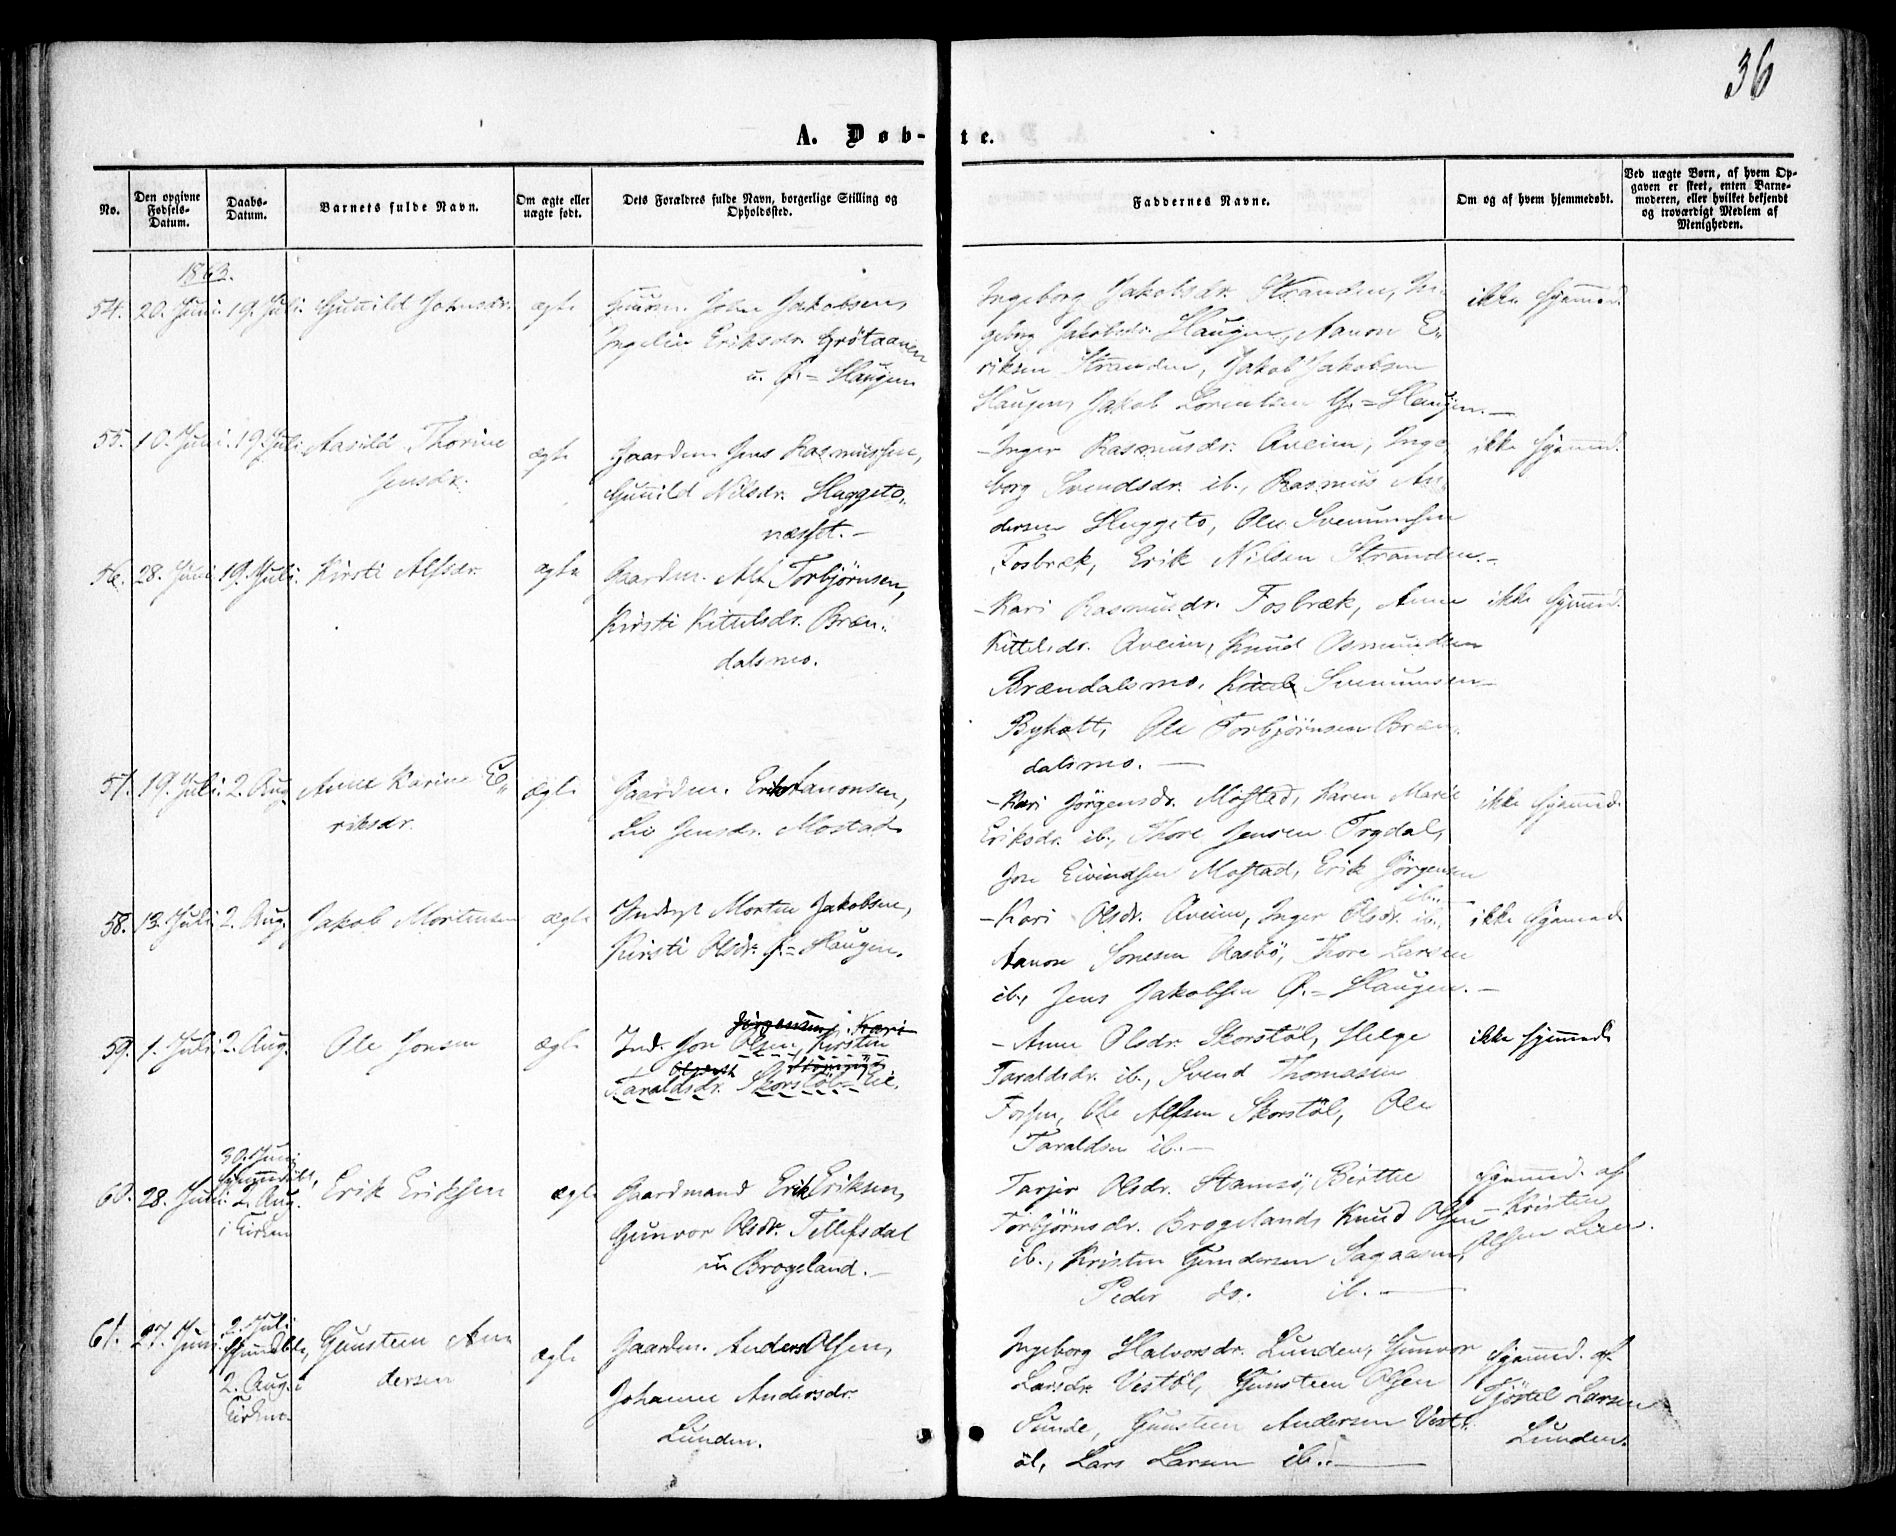 36
A. Døb-te.
No.
Den opgivne Fødsels-Datum.
Daabs-Datum.
Barnets fulde Navn.
Om ægte eller uægte født.
Dets Forældres fulde Navn, borgerlige Stilling og Opholdssted.
Faddernes Navne.
Om og af hvem hjemmedøbt.
Ved uægte Børn, af hvem Opgaven er skeet, enten Barnemoderen, eller hvilket bekjendt og troværdigt Medlem af Menigheden.
1863.
54. 20. Juni. 19. Juli. Gunild Johnsdr. ægte
John Jakobsen,
Eriksdr. Grötaanen
u. Ø.=Haugen
Ingeborg Jakobsdr. Stranden, In-
geborg Jakobsdr. Haugen, Aanon E-
riksen Stranden, Jakob Jakobsen
Haugen, Jakob Lorentsen Ø.=Haugen.—
ikke hjemmed.
55. 10. Juni. 19. Juli. Aasild Thorine
Jensdr.
ægte
Gaardm. Jens Rasmussen,
Gunild Nilsdr. Huggeto-
næsset.—
-Inger Rasmusdr. Aveim, Inge-
borg Svendsdr. ib., Rasmus An-
dersen Huggeto, Ole Svenumsen
Fosbræk, Erik Nilsen Stranden.-
ikke hjemmed.
56. 28. Juni 19. Juli. Kirsti Alfsdr. ægte
Gaardm. Alf Torbjørnsen,
Kirsti Kittelsdr. Bræn-
dalsmo.
-Kari Rasmusdr. Fosbræk, Anne
Kittelsdr. Aveim, Knud Osmundsen
Brændalsmo, Kittel Svenumsen
Byholt, Ole Torbjørnsen Bræn-
dalsmo.—
ikke hjemmed.
57. 19. Juli. 2. Aug. Anne Karine E-
riksdr.
ægte
Gaardm. Erik Aanonsen,
Liv Jensdr. Mostad.
-Kari Jörgensdr. Mostad, Karen Marie
Eriksdr. ib., Thore Jensen Trydal,
Jon Eivindsen Mostad, Erik Jörgensen
ib.-
ikke hjemmed.
58. 13. Juli 2. Aug. Jakob Mortensen ægte
Inderst Morten Jakobsen,
Kirsti Olsdr. Ø.=Haugen.
-Kari Olsdr. Aveim, Inger Olsdr. ib.,
Aanon Aasbö, Thore Larsen
ib., Jens Jakobsen Ø.=Haugen.-
ikke hjemmed.
59. 1. Juli. 2. Aug. Ole Jonsen ægte
Jörgensen, Kari
Ind. Jon Olsen, Kirsten
Taraldsdr. Skorstöl-Eie.
-Anne Olsdr. Skorstöl, Helge
Taraldsdr. ib., Svend Thomasen
Fossen, Ole Alfsen Skorstöl, Ole
Taraldsen ib.—
ikke hjemmed.
60. 28. Juni.
30. Juni
hjemmedöbt,
2. Aug.
i Kirken
Erik Eriksen ægte
Gaardmand Erik Eriksen,
Gunvor Olsdr. Tellefsdal
u Brogeland.—
Tarjer Olsdr. Stamsö, Birthe
Torbjørnsdr. Brogeland, Knud Olsen
ib., Kristen Gundersen Sagaaren,
Peder do. ib.—
hjemmed. af
Kristen
Olsen Lien.
61. 27. Juni.
2. Juli
hjemdbt,
2. Aug. i
Kirken.
Gunsteen An-
dersen
ægte
Gaardm. Anders Olsen,
Johanne Andersdr.
Lunden.
Ingeborg Halvorsdr. Lunden, Gunvor
Larsdr. Vestöl, Gunsteen Olsen
Sunde, Gunsteen Andersen Vest-
öl, Lars Larsen ib.—
hjemmed. af
Tjöstel Larsen
Lunden.